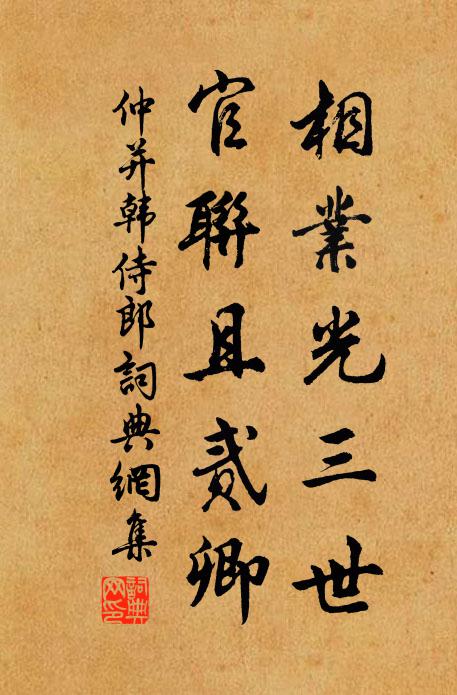 相業光三世
官聯且貳卿
仲并韩侍郎詞典網集
詞典網印